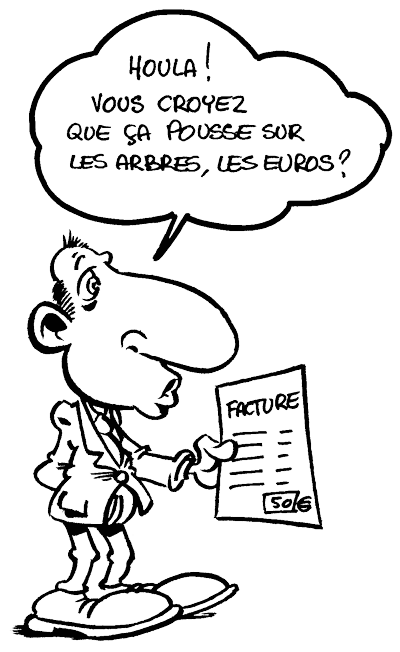 HOULA !
VOUS CROYEZ
QUE ÇA POUSSE SUR
LES ARBRES, LES EUROS ?
FACTURE
50 €